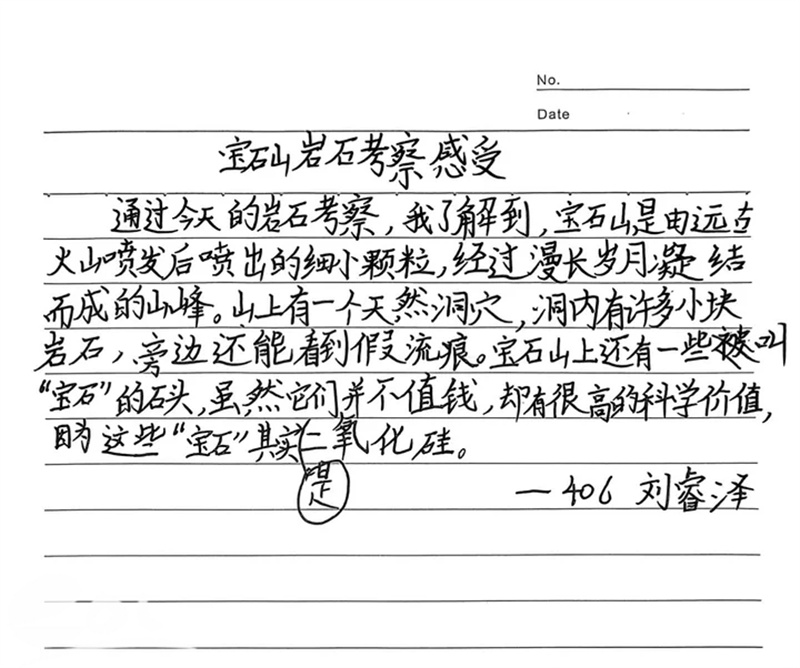 No.
Date
宝石山岩石考察感受
通过今天的岩石考察，我了解到，宝石山是由远古
火山喷发后喷出的细小颗粒，经过漫长岁月凝结
而成的山峰。山上有一个天然洞穴，洞内有许多小块
岩石，旁边还能看到假流痕。宝石山上还有一些被叫
“宝石”的石头，虽然它们并不值钱，却有很高的科学价值，
因为这些“宝石”其实是二氧化硅。
—406 刘睿泽